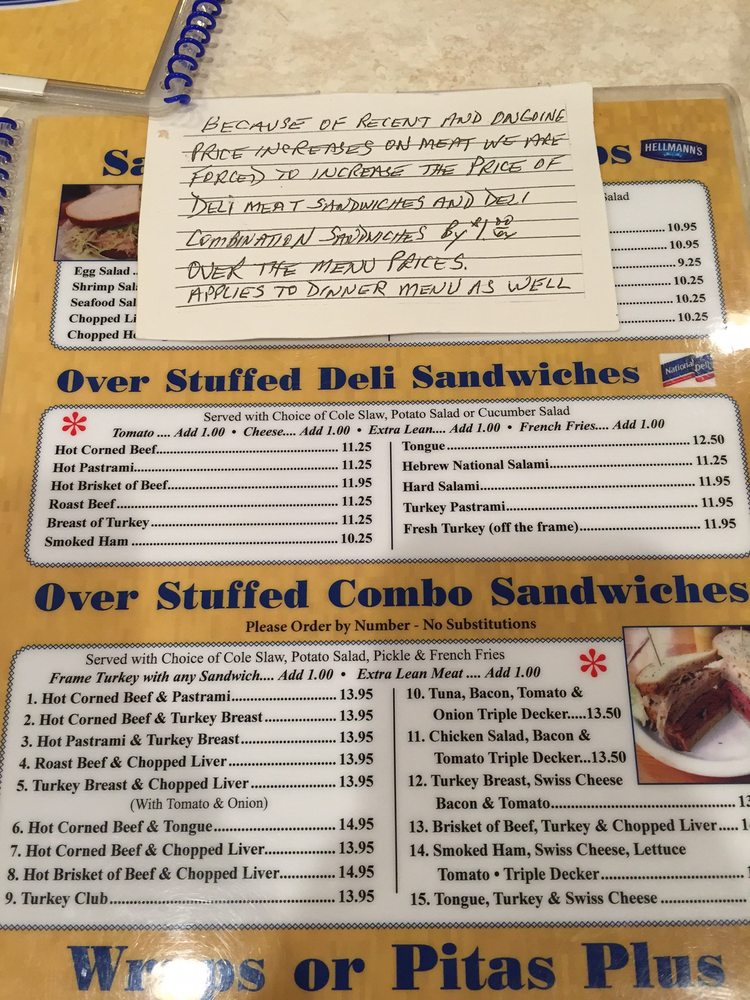 BECAUSE OF RECENT AND ONGOING
PRICE INCREASES ON MEAT WE ARE
FORCED TO INCREASE THE PRICE OF
DELI MEAT SANDWICHES AND DELI
COMBINATION SANDWICHES BY $1.00
OVER THE MENU PRICES.
APPLIES TO DINNER MENU AS WELL
HELLMANN'S
Salad
10.95
10.95
Egg Salad
9.25
Shrimp
10.25
Seafood
10.25
Chopped
10.25
Chopped
Over Stuffed Deli Sandwiches
National Deli
Served with Choice of Cole Slaw, Potato Salad or Cucumber Salad
Tomato .... Add 1.00 • Cheese.... Add 1.00 • Extra Lean.... Add 1.00 • French Fries.... Add 1.00
Hot Corned Beef 11.25
Hot Pastrami 11.25
Hot Brisket of Beef 11.95
Roast Beef 11.25
Breast of Turkey 11.25
Smoked Ham 10.25
Tongue 12.50
Hebrew National Salami 11.25
Hard Salami 11.95
Turkey Pastrami 11.95
Fresh Turkey (off the frame) 11.95
Over Stuffed Combo Sandwiches
Please Order by Number - No Substitutions
Served with Choice of Cole Slaw, Potato Salad, Pickle & French Fries
Frame Turkey with any Sandwich.... Add 1.00 • Extra Lean Meat .... Add 1.00
1. Hot Corned Beef & Pastrami 13.95
2. Hot Corned Beef & Turkey Breast 13.95
3. Hot Pastrami & Turkey Breast 13.95
4. Roast Beef & Chopped Liver 13.95
5. Turkey Breast & Chopped Liver 13.95
(With Tomato & Onion)
6. Hot Corned Beef & Tongue 14.95
7. Hot Corned Beef & Chopped Liver 13.95
8. Hot Brisket of Beef & Chopped Liver 14.95
9. Turkey Club 13.95
10. Tuna, Bacon, Tomato &
Onion Triple Decker.....13.50
11. Chicken Salad, Bacon &
Tomato Triple Decker...13.50
12. Turkey Breast, Swiss Cheese
Bacon & Tomato
13. Brisket of Beef, Turkey & Chopped Liver
14. Smoked Ham, Swiss Cheese, Lettuce
Tomato • Triple Decker
15. Tongue, Turkey & Swiss Cheese
Wraps or Pitas Plus